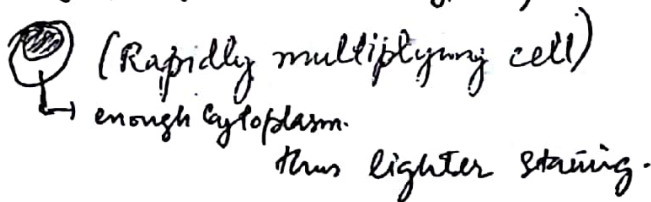 (Rapidly multiplying cell)
↳ enough Cytoplasm.
thus lighter staining.